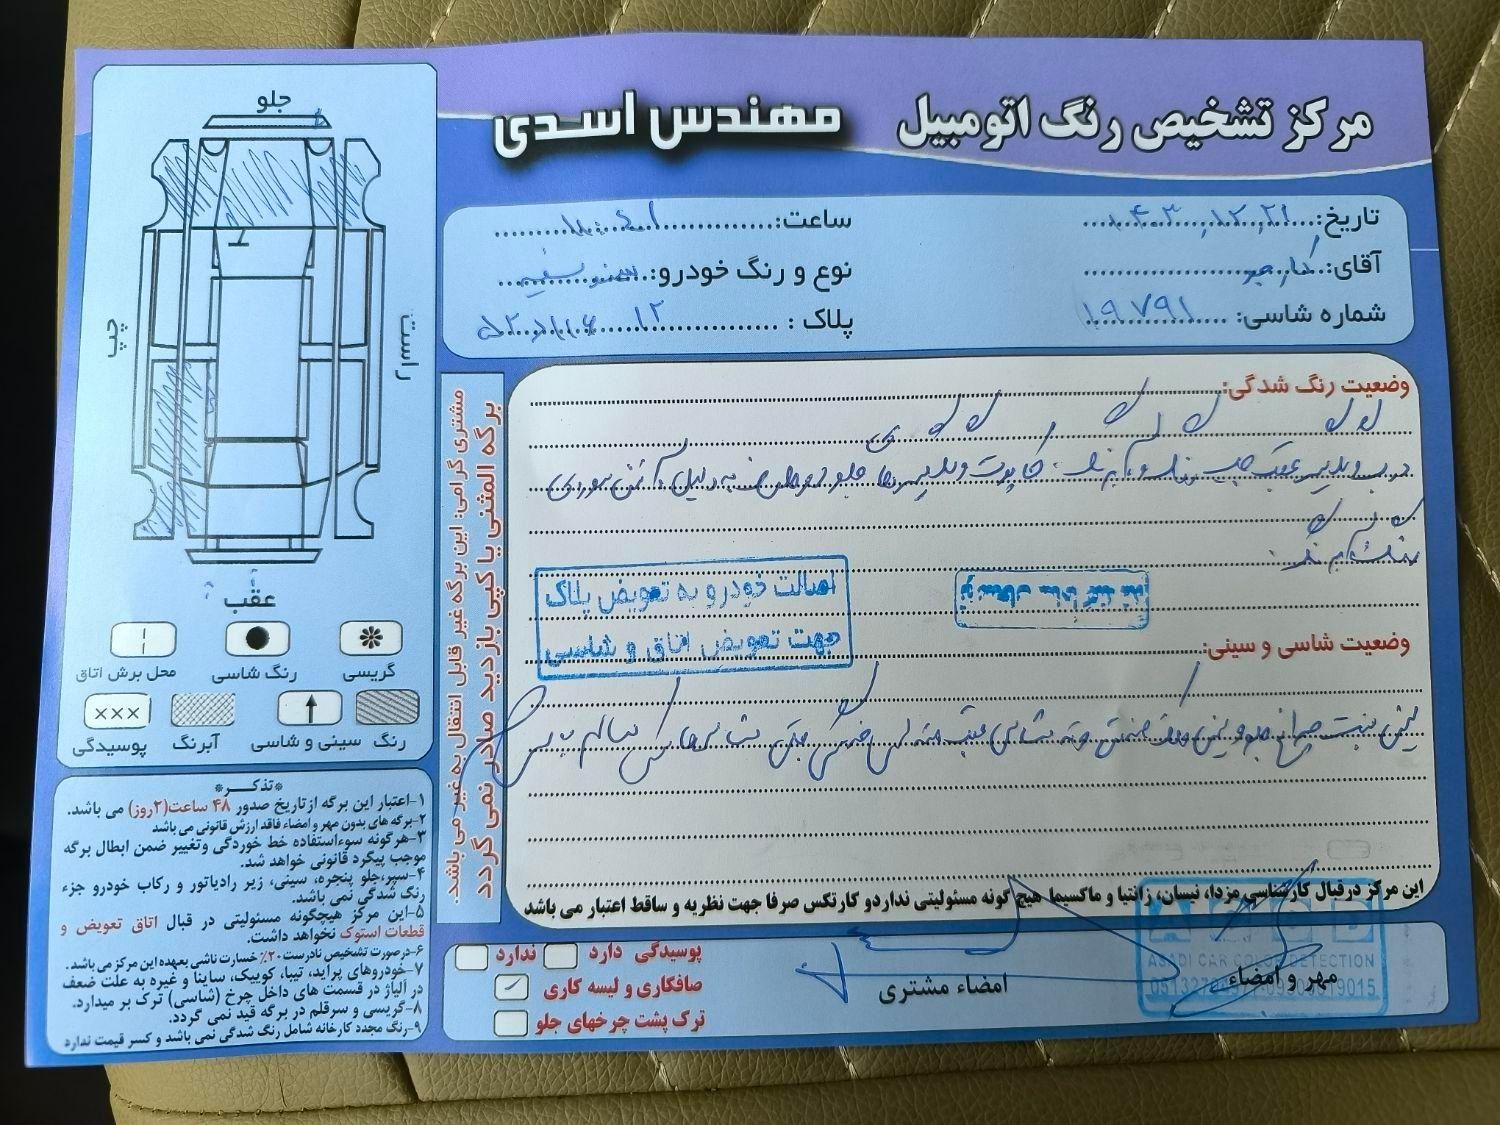 مرکز تشخیص رنگ اتومبیل مهندس اسدی
تاریخ: ۱۴۰۳,۱۲,۲۱
ساعت:
آقای:
نوع و رنگ خودرو: سمند سفید
شماره شاسی: ۱۹۷۹۱
پلاک: ۱۲
وضعیت رنگ شدگی:
درب و گلگیر عقب چپ رنگ و آبرنگ. کاپوت و گلگیرهای جلو
اصالت خودرو به تعویض پلاک
جهت تعویض اتاق و شاسی
وضعیت شاسی و سینی:
این مرکز درقبال کارشناسی مزدا، نیسان، زانتیا و ماکسیما هیچ گونه مسئولیتی نداردو کارتکس صرفا جهت نظریه و ساقط اعتبار می باشد
پوسیدگی دارد ندارد
صافکاری و لیسه کاری
ترک پشت چرخهای جلو
امضاء مشتری
مهر و امضاء
ASADI CAR COLOR DETECTION
مشتری گرامی: این برگه غیر قابل انتقال به غیر می باشد.
برگه المثنی یا کپی بازدید صادر نمی گردد
جلو
چپ
راست
عقب
گریسی
رنگ شاسی
محل برش اتاق
رنگ
سینی و شاسی
آبرنگ
پوسیدگی
*تذکر*
۱-اعتبار این برگه از تاریخ صدور ۴۸ ساعت(۲روز) می باشد.
۲-برگه های بدون مهر و امضاء فاقد ارزش قانونی می باشد
۳-هرگونه سوءاستفاده خط خوردگی وتغییر ضمن ابطال برگه
موجب پیگرد قانونی خواهد شد.
۴-سپر،جلو پنجره، سینی، زیر رادیاتور و رکاب خودرو جزء
رنگ شدگی نمی باشد.
۵-این مرکز هیچگونه مسئولیتی در قبال اتاق تعویض و
قطعات استوک نخواهد داشت.
۶-درصورت تشخیص نادرست ۲۰٪ خسارت ناشی بعهده این مرکز می باشد.
۷-خودروهای پراید، تیبا، کوییک، ساینا و غیره به علت ضعف
در آلیاژ در قسمت های داخل چرخ (شاسی) ترک بر میدارد.
۸-گریسی و سرقلم در برگه قید نمی گردد.
۹-رنگ مجدد کارخانه شامل رنگ شدگی نمی باشد و کسر قیمت ندارد